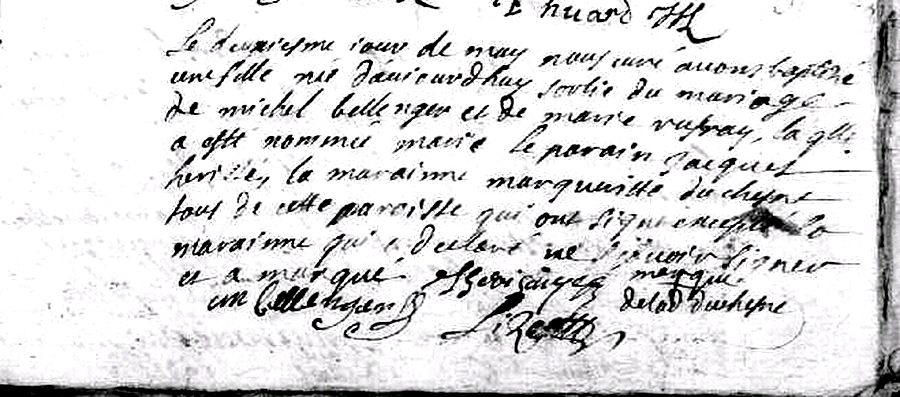 huard
Le deuxiesme jour de may nous curé avons baptisé
une fille née d'aujourdhuy sortie du mariage
de michel bellenger et de marie rufray, la qlle
a esté nommée marie le parain jacques
herissé, la marainne marqueritte duchesne
tous de cette paroisse qui ont signé excepté la
marainne qui a declaré ne sçavoir signer
et a marqué marque
m bellenger de lad duchesne